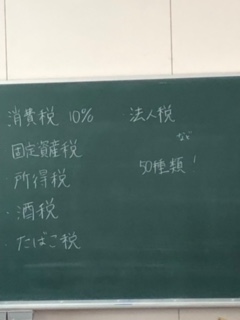 消費税 10%
固定資産税
・所得税
・酒税
・たばこ税
法人税
など
50種類！